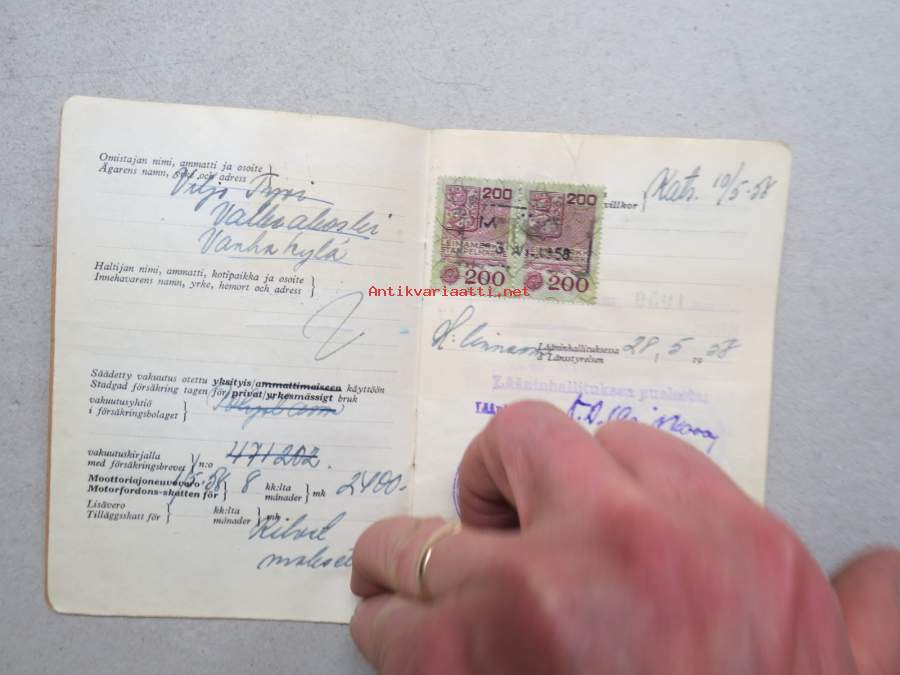 Omistajan nimi, ammatti ja osoite
Ägarens namn, yrke och adress
Viljo
Valkeakoski
Vanhakylä
Haltijan nimi, ammatti, kotipaikka ja osoite
Innehavarens namn, yrke, hemort och adress
Säädetty vakuutus otettu yksityis/ammattimaiseen käyttöön
Stadgad försäkring tagen för privat/yrkesmässigt bruk
vakuutusyhtiö
i försäkringsbolaget
vakuutuskirjalla
med försäkringsbrevet
n:o 471202
Moottoriajoneuvovero
Motorfordons-skatten för
8 kk:lta
månader
mk 2400.-
Lisävero
Tilläggsskatt för
kk:lta
månader
mk
Kilvet
villkor
Kats. 10/5-58
200 200
LEIMAMERKKI
STÄMPELMÄRKE
200 200
58
Antikvariaatti.net
H:linnassa
Lääninhallituksessa
å Länsstyrelsen
28. 5 19 57
Lääninhallituksen puolesta: